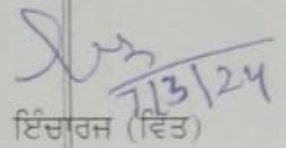 7/3/24
ਇੰਚਾਰਜ (ਵਿੱਤ)